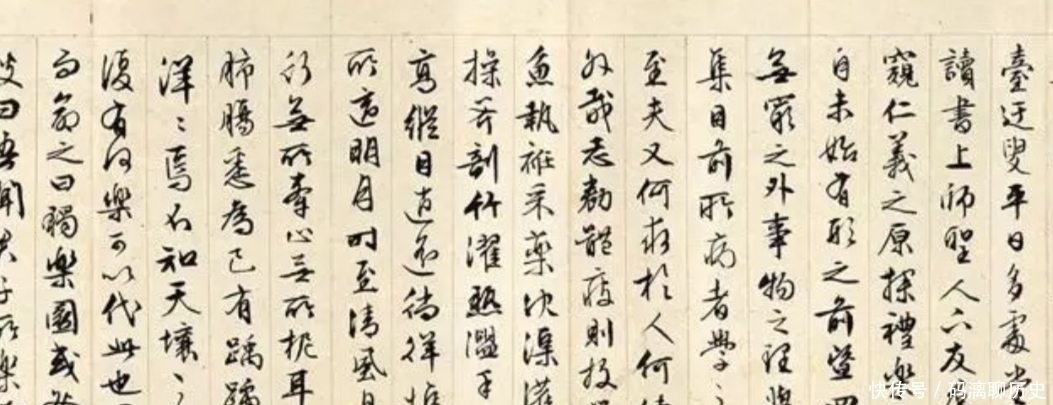 臺迂叟平日多處
讀書上師聖人下友
窺仁義之原探禮樂
自未始有形之前暨四
無窮之外事物之理舉
集目前所病者學之
至夫又何求於人何待
外哉志勌體疲則投
魚執衽采藥決渠灌
操斧剖竹濯熱盥手
高縱目逍遙徜徉
所適明月時至清風自
行無所牽止無所柅耳
肺腸悉為己有踽踽
洋〻焉不知天壤之
復有何樂可以代此也
而命之曰獨樂園或
叟曰吾聞君子所樂
快传号 / 码漓聊历史